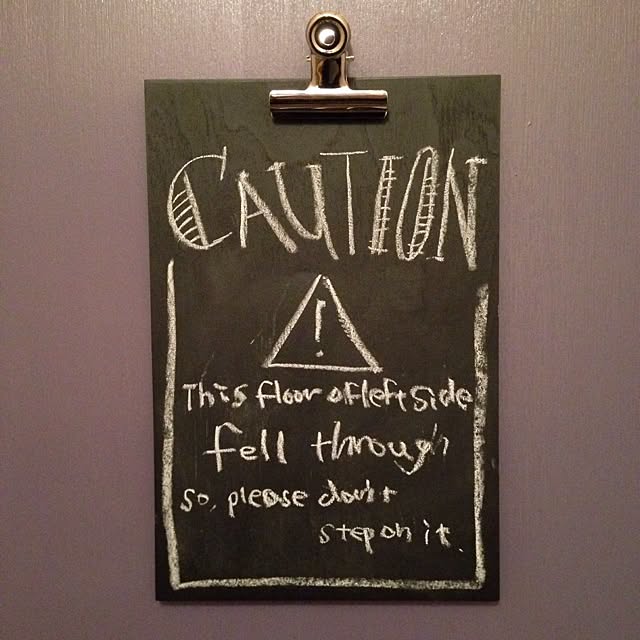 CAUTION
!
This floor of left side
fell through
so, please don't
step on it.